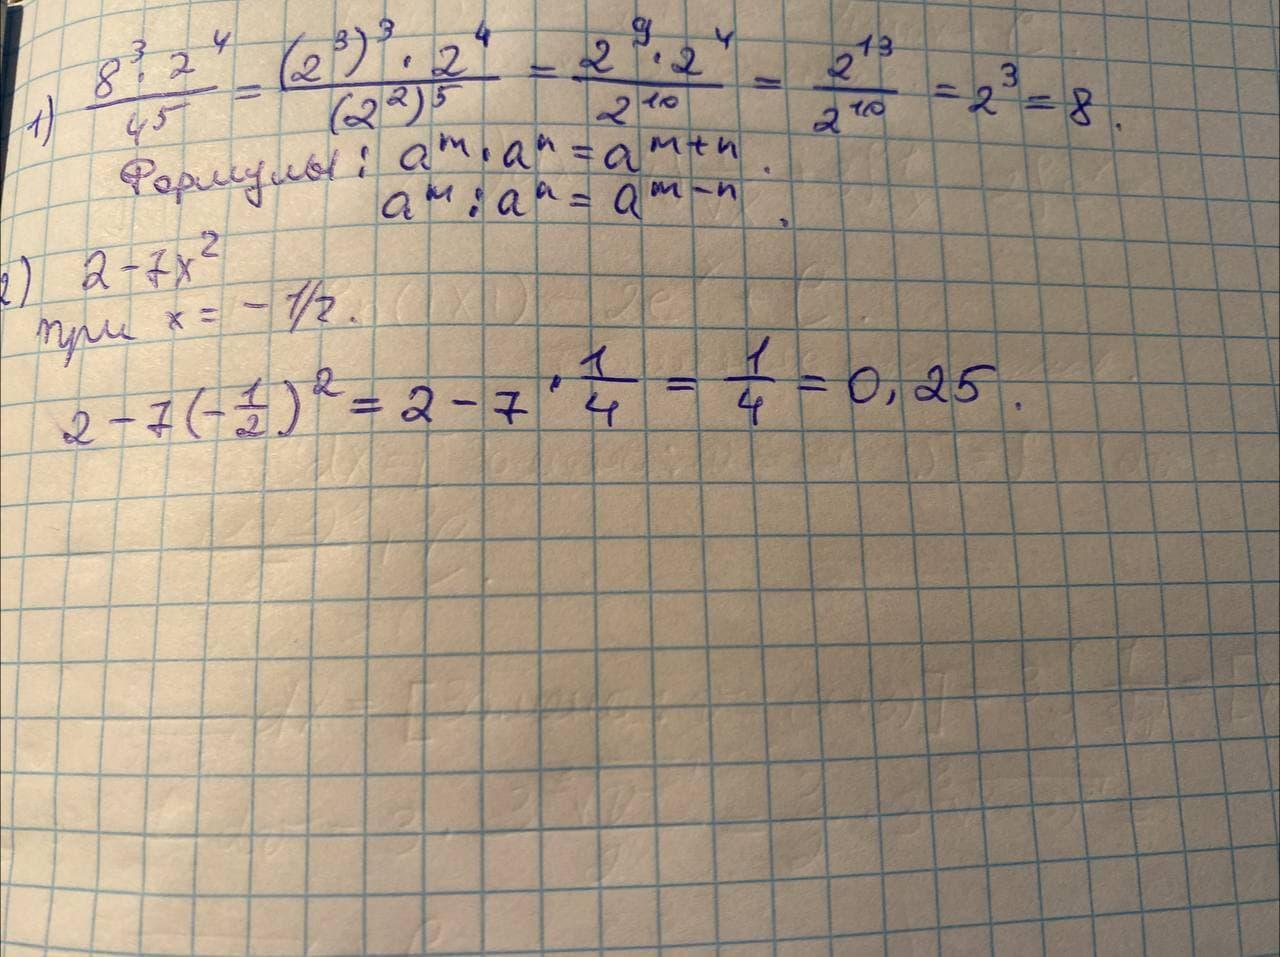 1) \frac{8^3 \cdot 2^4}{4^5} = \frac{(2^3)^3 \cdot 2^4}{(2^2)^5} = \frac{2^9 \cdot 2^4}{2^{10}} = \frac{2^{13}}{2^{10}} = 2^3 = 8.
Формулы: a^m \cdot a^n = a^{m+n}.
a^m : a^n = a^{m-n}.
2) 2-7x^2
при x = -1/2.
2-7(-\frac{1}{2})^2 = 2-7 \cdot \frac{1}{4} = \frac{1}{4} = 0,25.